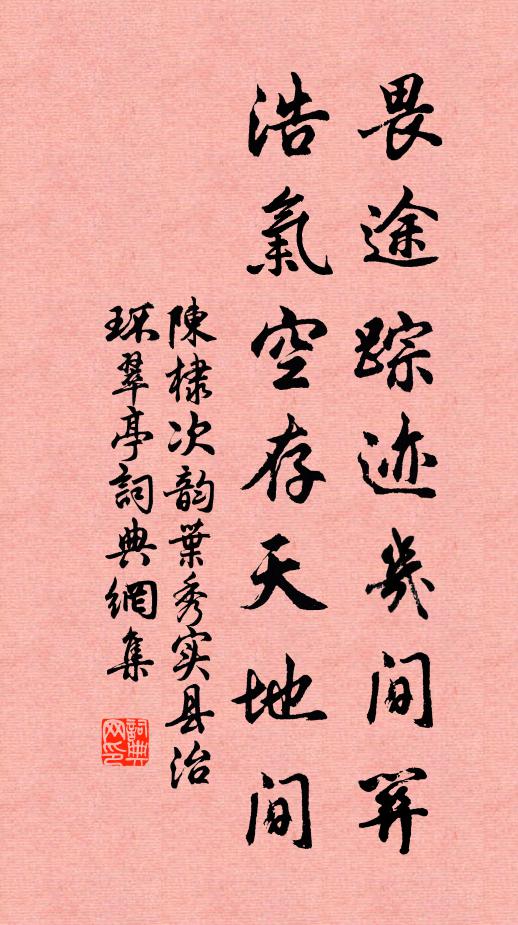 畏途踪迹幾间關
浩氣空存天地间
陳棣次韵葉秀实县治
环翠亭詞典網集
詞典網印